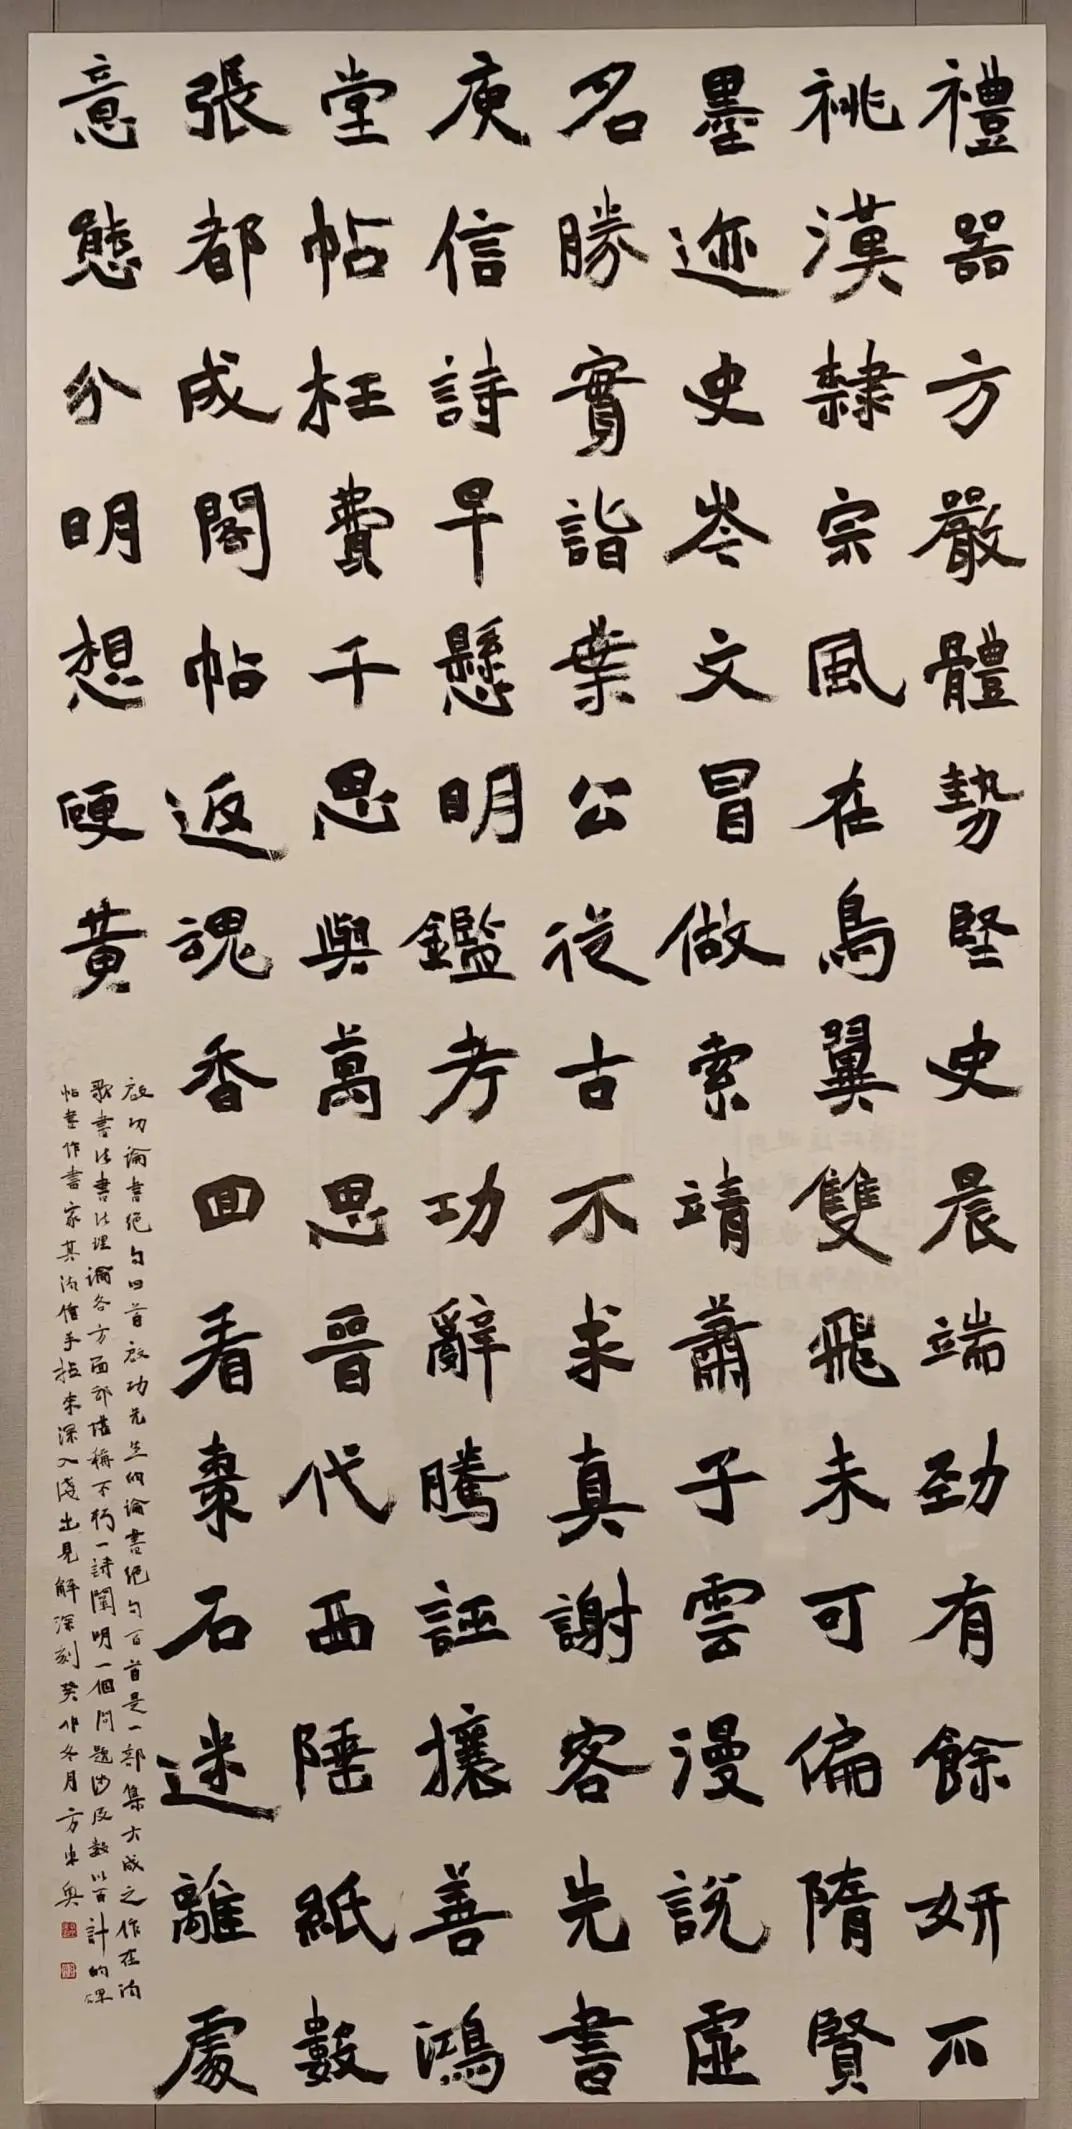 禮器方嚴體勢堅史晨端劲有餘妍不
祧漢隸宗風在鳥翼雙飛未可偏隋賢
墨迹史岑文冒做索靖蕭子雲漫説虛
名勝實詣葉公從古不求真謝客先書
庾信詩早懸明鑑考功辭騰誣攘善鴻
堂帖枉費千思與萬思晉代西陲紙數
張都成閣帖返魂香回看棗石迷離處
意態分明想硬黄
啟功論書絕句四首啟功先生的論書絕句百首是一部集大成之作在詩
歌書法書法理論各方面都堪稱不朽一詩闡明一個問題涉及數以百計的碑
帖書作書家其詩信手拈來深入淺出見解深刻癸卯冬月方東奥